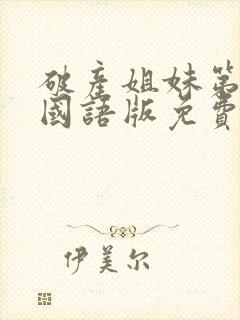 破產姐妹第
國語版免費
伊美尔